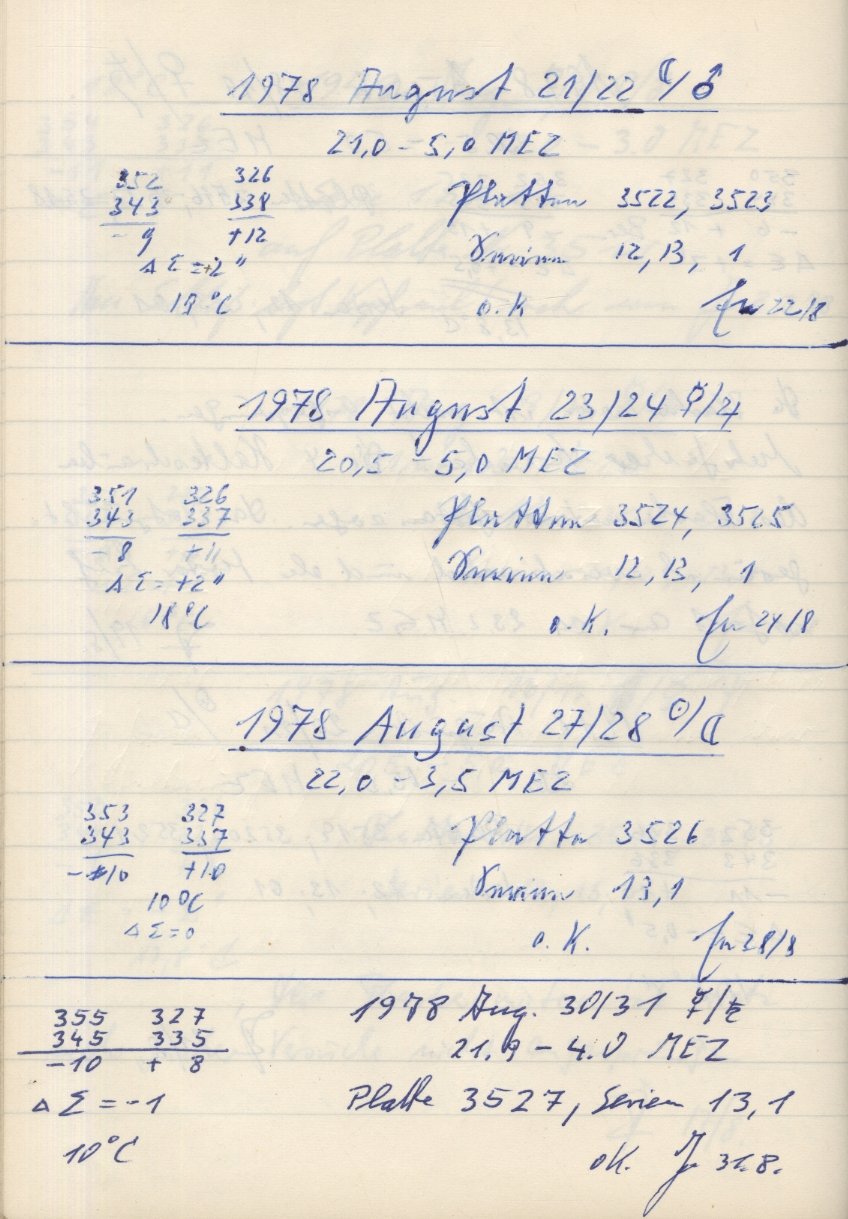 1978 August 21/22 ☾/♂
21,0 – 5,0 MEZ
352 326
343 338
– 9 +12
Δ Σ = +2"
19°C
Platten 3522, 3523
Serien 12, 13, 1
o.K 22/8
1978 August 23/24 ☿/♃
20,5 – 5,0 MEZ
351 326
343 337
– 8 +11
Δ Σ = +2"
18°C
Platten 3524, 3525
Serien 12, 13, 1
o.K. 24/8
1978 August 27/28 ☉/☾
22,0 – 3,5 MEZ
353 327
343 337
–10 +10
10°C
Δ Σ = 0
Platte 3526
Serien 13, 1
o.K. 28/8
1978 Aug. 30/31 ☿/♃
21.9 – 4.0 MEZ
355 327
345 335
–10 + 8
Δ Σ = –1
10°C
Platte 3527, Serien 13, 1
oK. 31.8.